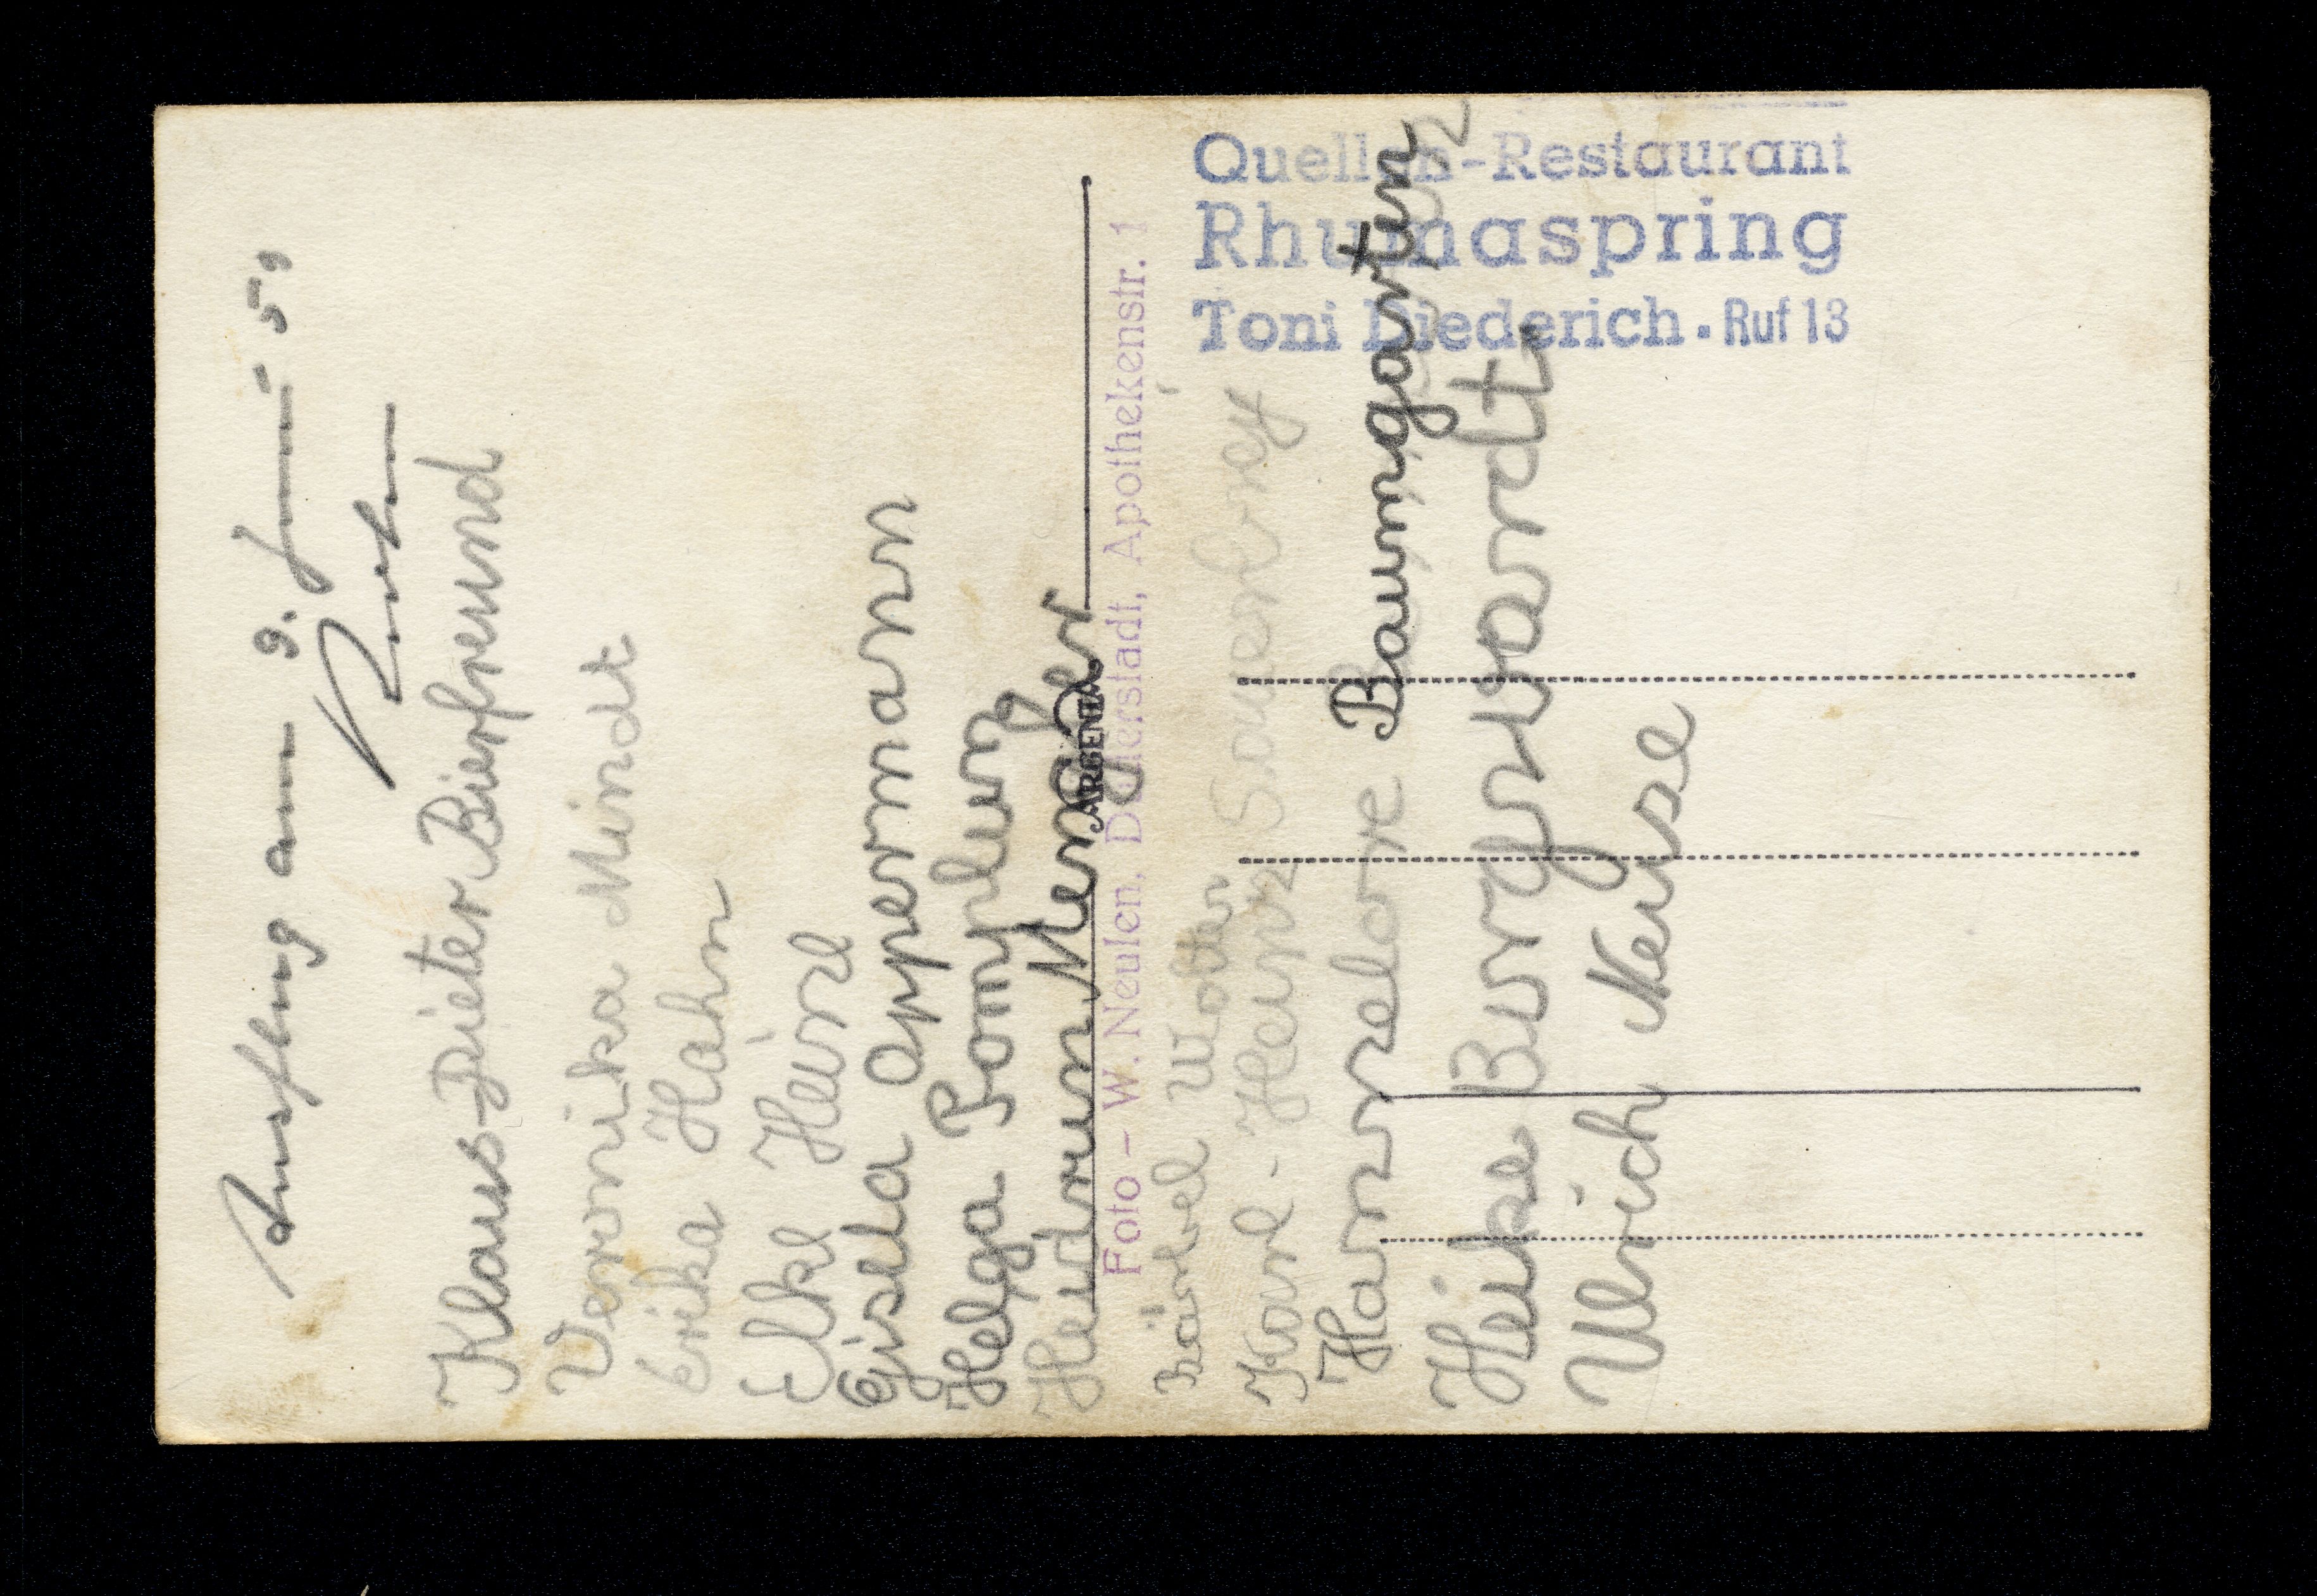 Ausflug am 9. Juni 59
Klaus-Dieter Bierfreund
Veronika Mindt
Erika Hahn
Elke Heise
Gisela Oppermann
Helga Pomplun
Heidrun Mengler
ARGENTA
Foto - W. Neulen, Duderstadt, Apothekenstr. 1
Bärbel Wolter
Karl-Heinz Sauerbrey
Hannelore Baumgarten
Heike Burgwardt
Ulrich Neise
Quellen-Restaurant
Rhumaspring
Toni Diederich · Ruf 13